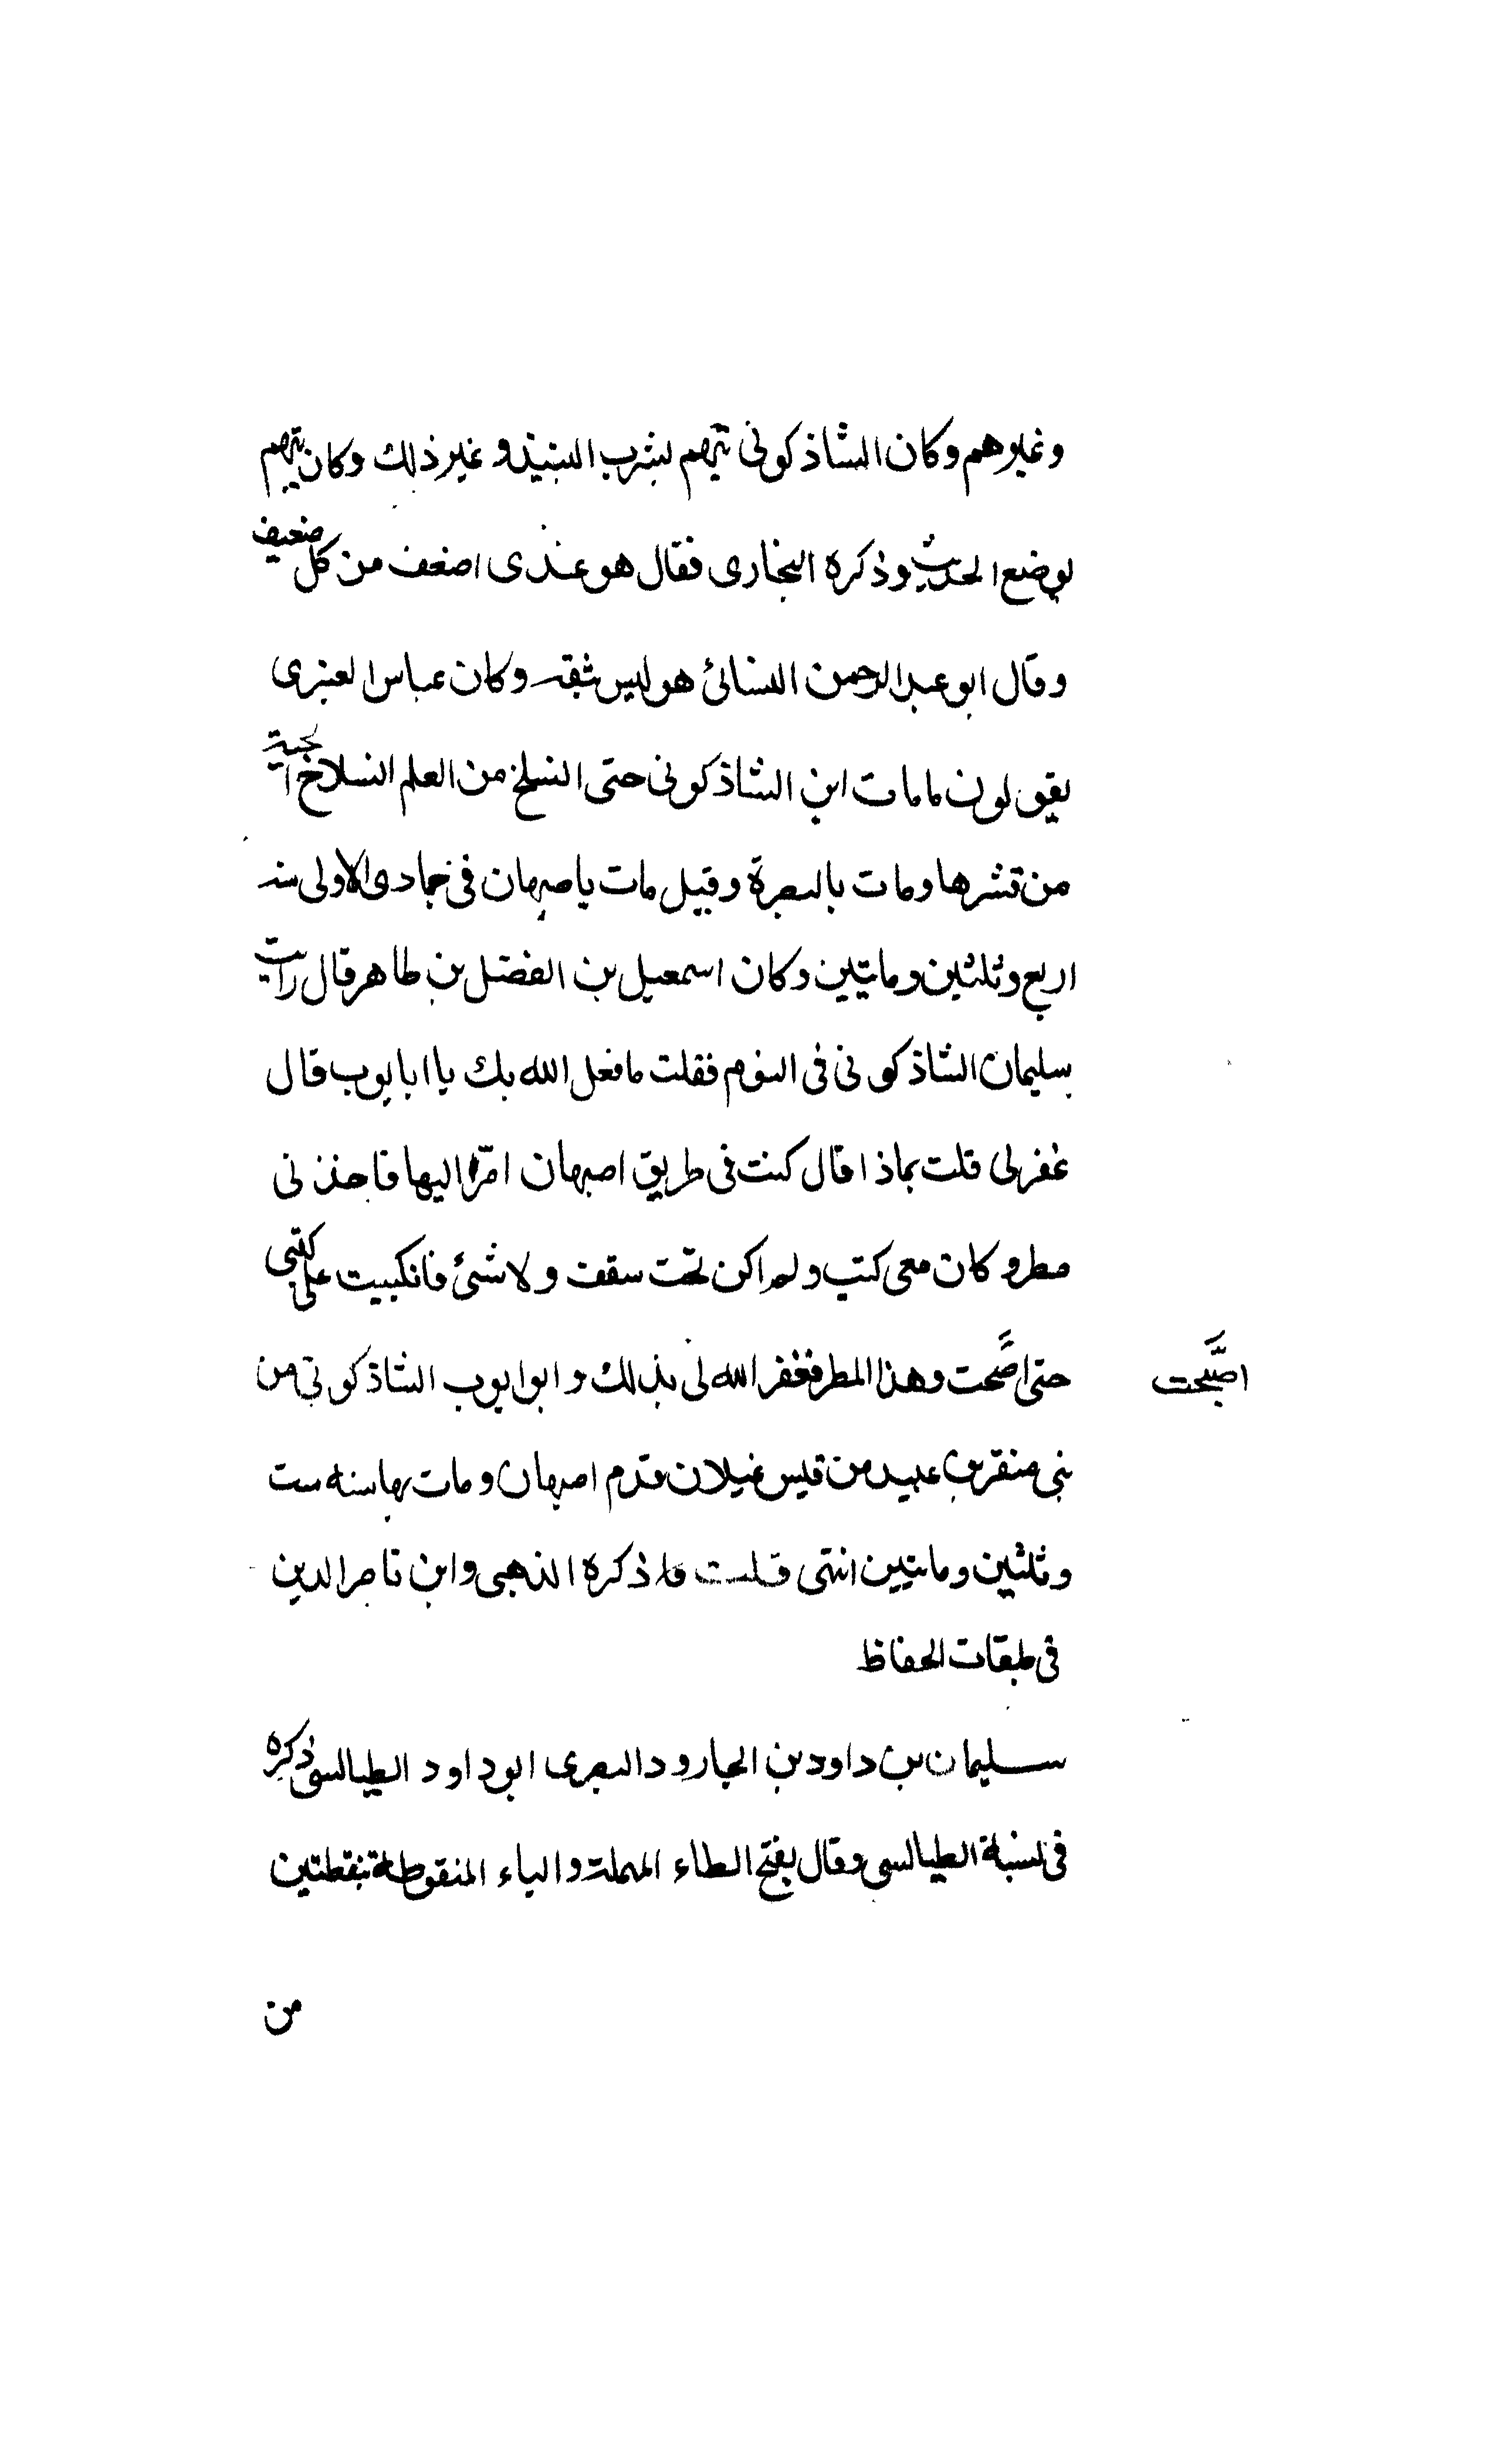 وغيرهم وكان الشاذكونى يتهم بشرب النبيذ وغير ذلك وكان يتهم
بوضع الحديث وذكره البخارى فقال هو عندى اضعف من كل ضعيف
وقال ابو عبد الرحمن النسائئ هو ليس بثقة وكان عباس العنبرى
يقول لون مامات ابن الشاذكونى حتى انسلخ من العلم انسلاخ الحية
من قشرها ومات بالبصرة وقيل مات باصبهان فى جمادى الاولى سنة
اربع وثلثين ومايتين وكان اسمعيل بن الفضل بن طاهر قال رايت
سليمان الشاذكونى فى النوم فقلت مافعل الله بك يا ابا ايوب قال
غفرلى قلت بماذا قال كنت فى طريق اصبهان امرّ اليها فاخذنى
مطر وكان معى كتب ولم اكن تحت سقف ولا شئ فانكببت على كتبى
حتى اصبحت وهذا المطر فغفر الله لى بذلك وابو ايوب الشاذكونى من
اصبحت
بنى منقر بن عبيد من قيس غيلان قدم اصبهان ومات بها سنه ست
وثلثين ومايتين انتهى قلت ذكره الذهبى وابن ناصر الدين
فى طبقات الحفاظ
سليمان بن داود بن الجارود البصرى ابو داود الطيالسى ذكره
فى نسبة الطيالسى وقال بفتح الطاء المهملة والياء المنقوطة بنقطتين
من